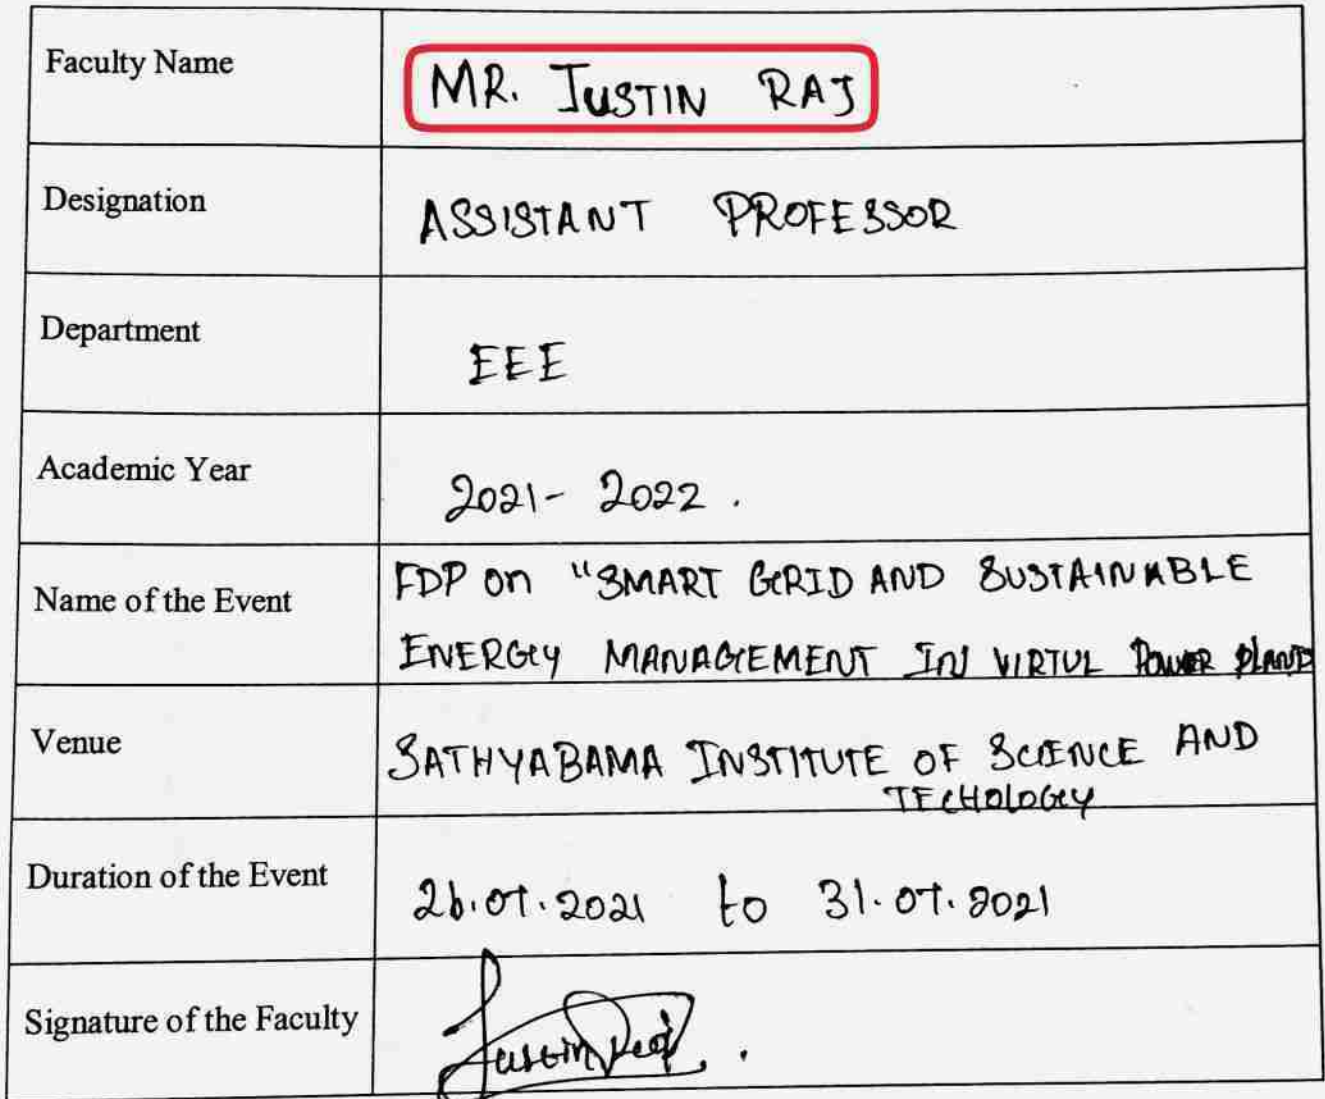 Faculty Name MR. JUSTIN RAJ
Designation ASSISTANT PROFESSOR
Department EEE
Academic Year 2021- 2022 .
FDP on "SMART GRID AND SUSTAINABLE
Name of the Event
ENERGY MANAGEMENT IN VIRTUL POWER PLANT
Venue SATHYABAMA INSTITUTE OF SCIENCE AND
TECHOLOGY
Duration of the Event 26.07.2021 to 31.07.2021
Signature of the Faculty Justin Raj.